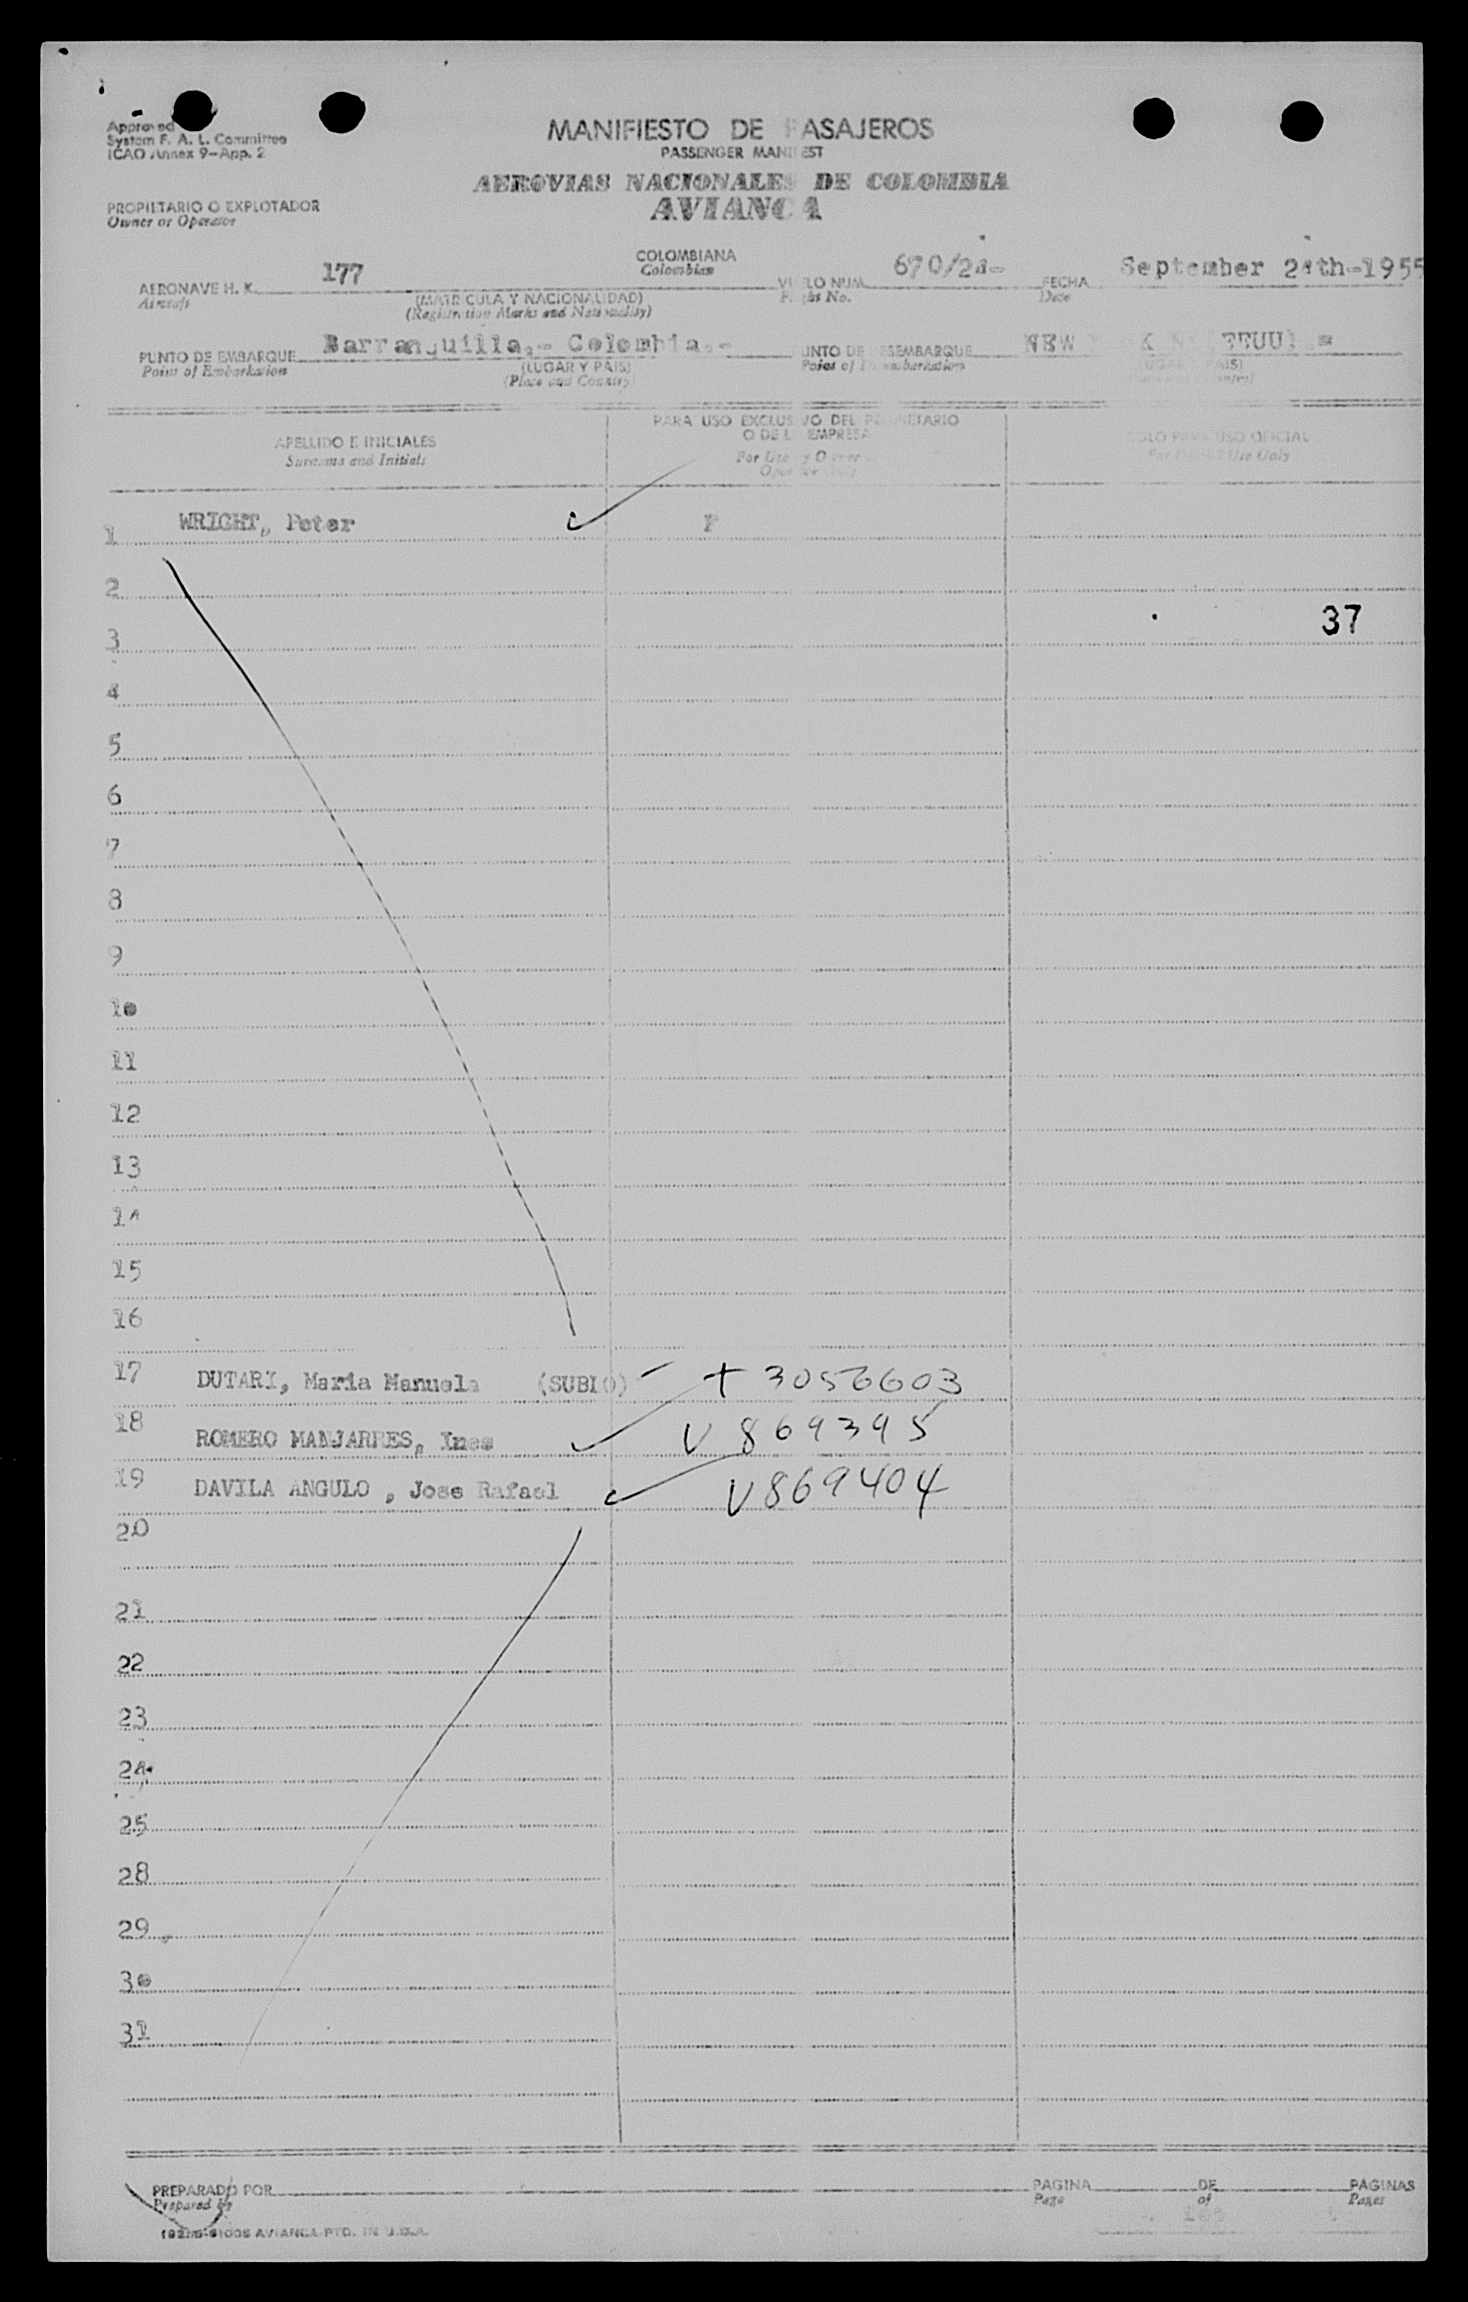 Approved
System F. A. L. Committee
ICAO Annex 9-App. 2
MANIFIESTO DE PASAJEROS
PASSENGER MANIFEST
AEROVIAS NACIONALES DE COLOMBIA
AVIANCA
PROPIETARIO O EXPLOTADOR
Owner or Operator
AERONAVE H. K. 177 COLOMBIANA VUELO NUM. 670/24- FECHA September 24th-1955
Aircraft Colombian Flight No. Date
(MATRICULA Y NACIONALIDAD)
(Registration Marks and Nationality)
PUNTO DE EMBARQUE Barranquilla,- Colombia.- PUNTO DE DESEMBARQUE NEW K EEUU
Point of Embarkation (LUGAR Y PAIS) Point of Disembarkation (LUGAR Y PAIS)
(Place and Country)
APELLIDO E INICIALES
Surname and Initials
PARA USO EXCLUSIVO DEL PROPIETARIO
O DE LA EMPRESA
For Use by Owner or
Operator Only
SOLO PARA USO OFICIAL
For Official Use Only
1 WRIGHT, Peter F
2
37
3
4
5
6
7
8
9
10
11
12
13
14
15
16
17 DUTARI, Maria Manuela (SUBIO) + 3056603
18 ROMERO MANJARRES, Ines V 869395
19 DAVILA ANGULO , Jose Rafael V869404
20
21
22
23
24
25
28
29
30
31
PREPARADO POR PAGINA DE PAGINAS
Prepared by Page of Pages
AVIANCA PTD. IN U.S.A.